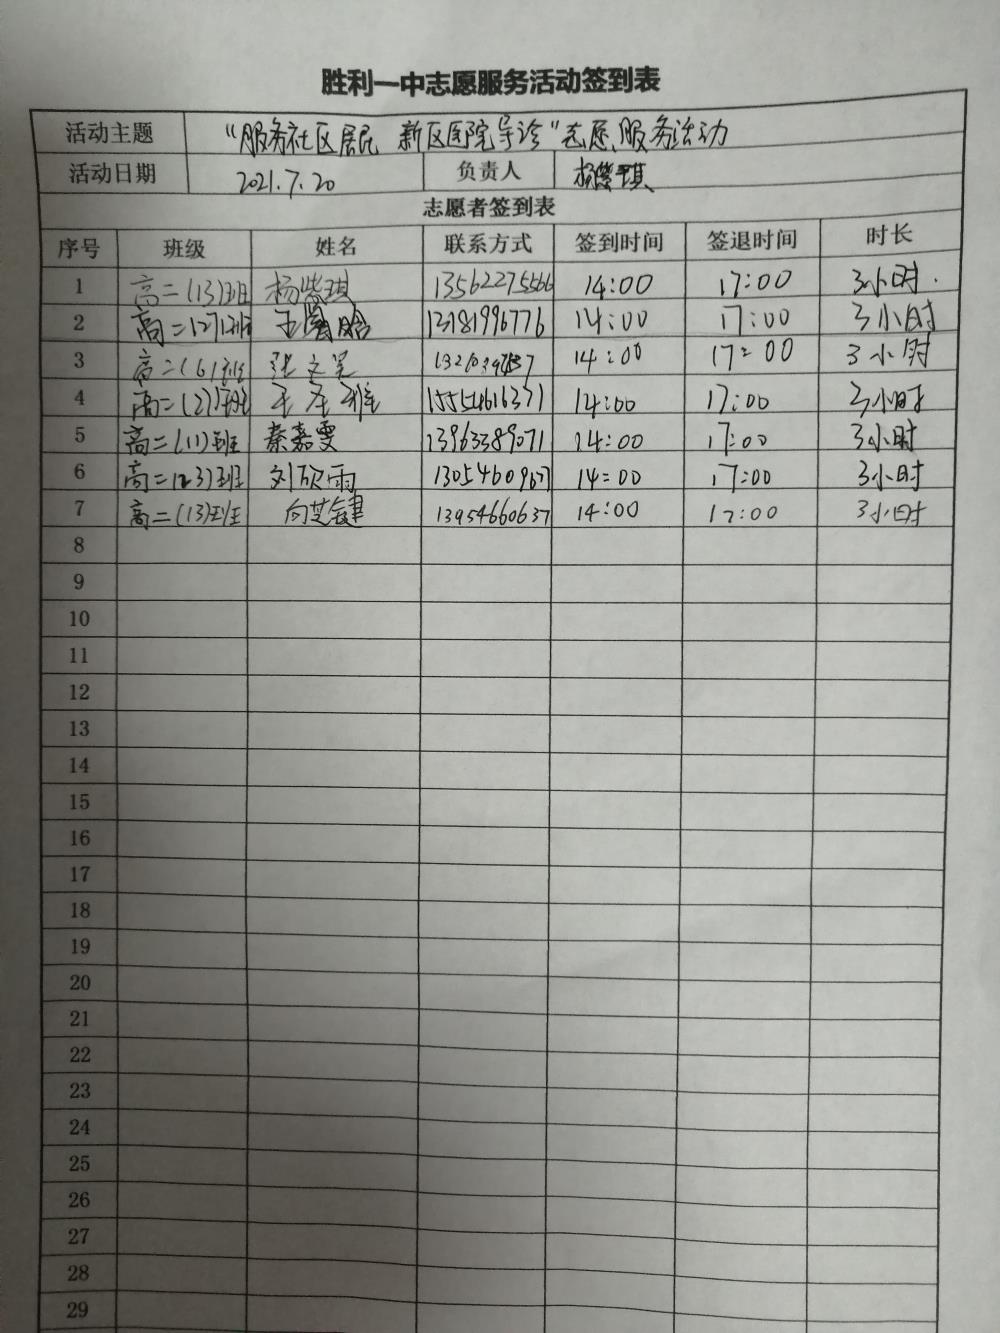 胜利一中志愿服务活动签到表
活动主题 “服务社区居民 新区医院导诊”志愿服务活动
活动日期 2021.7.20 负责人 杨紫琪
志愿者签到表
序号 班级 姓名 联系方式 签到时间 签退时间 时长
1 高二(13)班 杨紫琪 13562275566 14:00 17:00 3小时.
2 高二(27)班 13181996776 14:00 17:00 3小时
3 高二(6)班 张文昊 14:00 17:00 3小时
4 高二(2)班 14:00 17:00 3小时
5 高二(11)班 秦嘉雯 13963389071 14:00 17:00 3小时
6 高二(23)班 刘欣雨 13054609671 14:00 17:00 3小时
7 高二(13)班 13954660637 14:00 17:00 3小时
8
9
10
11
12
13
14
15
16
17
18
19
20
21
22
23
24
25
26
27
28
29